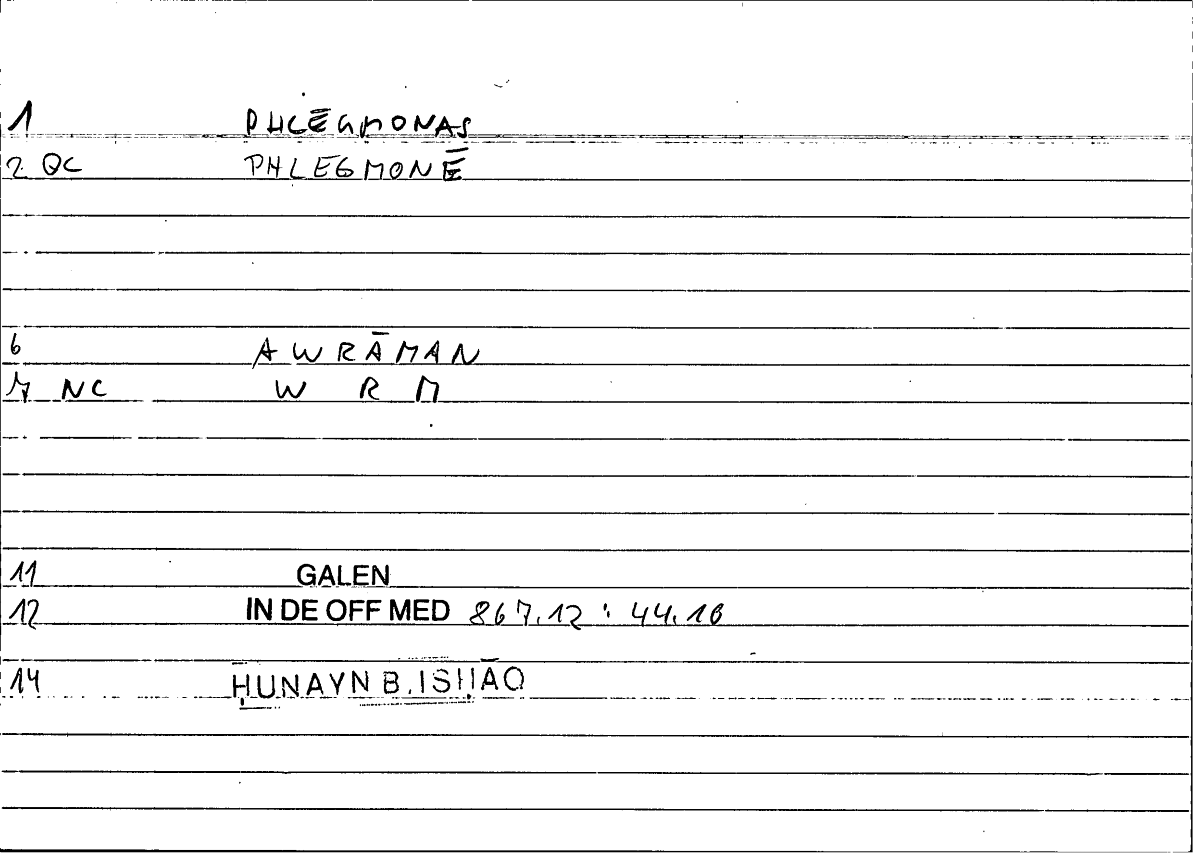 1 PHLĒGMONAS
2 QC PHLEGMONĒ
6 AWRĀMAN
7 NC W R M
11 GALEN
12 IN DE OFF MED 867.12 : 44.18
14 ḤUNAYN B. ISḤĀQ